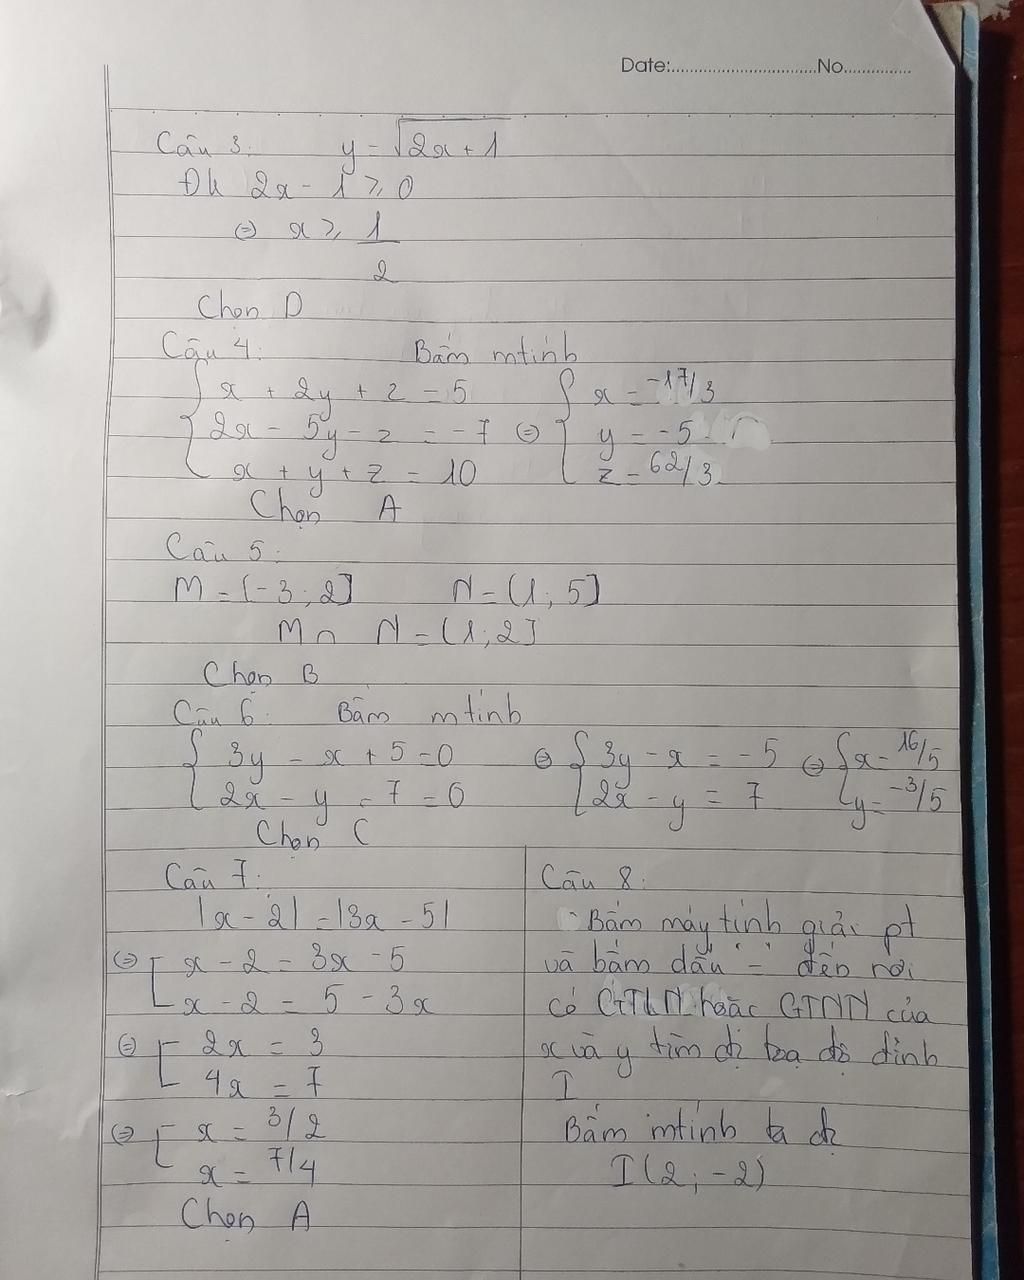 Date:...............................No...............
Câu 3: y = √2x + 1
Đk 2x - 1 ⩾ 0
⇔ x ⩾ 1/2
Chọn D
Câu 4: Bấm mtính
{ x + 2y + z = 5 { x = -17/3
{ 2x - 5y - z = -7 ⇔ { y = -5
{ x + y + z = 10 { z = 62/3
Chọn A
Câu 5:
M = [-3; 2] N = (1; 5]
M ∩ N = (1; 2]
Chọn B
Câu 6: Bấm mtính
{ 3y - x + 5 = 0 ⇔ { 3y - x = -5 ⇔ { x = 16/5
{ 2x - y - 7 = 0 { 2x - y = 7 { y = -3/5
Chọn C
Câu 7:
|x - 2| = |3x - 5|
⇔ [ x - 2 = 3x - 5
[ x - 2 = 5 - 3x
⇔ [ 2x = 3
[ 4x = 7
⇔ [ x = 3/2
[ x = 7/4
Chọn A
Câu 8:
Bấm máy tính giải pt
và bấm dấu "=" đến nơi
có GTLN hoặc GTNN của
x và y tìm đc tọa độ đỉnh
I
Bấm mtính ta đc
I(2; -2)